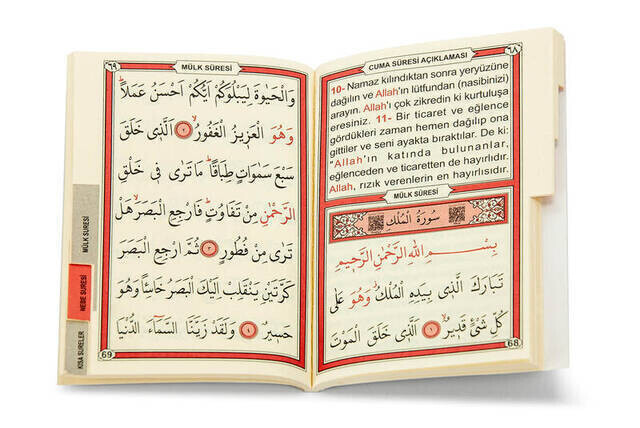 CUMA SÛRESİ AÇIKLAMASI ٦٨
10- Namaz kılındıktan sonra yeryüzüne
dağılın ve Allah'ın lütfundan (nasibinizi)
arayın. Allah'ı çok zikredin ki kurtuluşa
eresiniz. 11- Bir ticaret ve eğlence
gördükleri zaman hemen dağılıp ona
gittiler ve seni ayakta bıraktılar. De ki:
"Allah'ın katında bulunanlar,
eğlenceden ve ticaretten de hayırlıdır.
Allah, rızık verenlerin en hayırlısıdır.
MÜLK SÛRESİ
سُورَةُ الْمُلْكِ
بِسْمِ اللهِ الرَّحْمٰنِ الرَّحِيمِ
تَبَارَكَ الَّذٖى بِيَدِهِ الْمُلْكُ وَهُوَ عَلٰى
كُلِّ شَیْءٍ قَدٖيرٌ ١ اَلَّذٖى خَلَقَ الْمَوْتَ
68
٦٩ MÜLK SÛRESİ
وَالْحَيٰوةَ لِيَبْلُوَكُمْ اَيُّكُمْ اَحْسَنُ عَمَلًا
وَهُوَ الْعَزٖيزُ الْغَفُورُ ٢ اَلَّذٖى خَلَقَ
سَبْعَ سَمٰوَاتٍ طِبَاقًا مَا تَرٰى فٖى خَلْقِ
الرَّحْمٰنِ مِنْ تَفَاوُتٍ فَارْجِعِ الْبَصَرَ هَلْ
تَرٰى مِنْ فُطُورٍ ٣ ثُمَّ ارْجِعِ الْبَصَرَ
كَرَّتَيْنِ يَنْقَلِبْ اِلَيْكَ الْبَصَرُ خَاسِئًا وَهُوَ
حَسٖيرٌ ٤ وَلَقَدْ زَيَّنَّا السَّمَٓاءَ الدُّنْيَا
69
MÜLK SURESİ
NEBE SURESİ
KISA SURELER